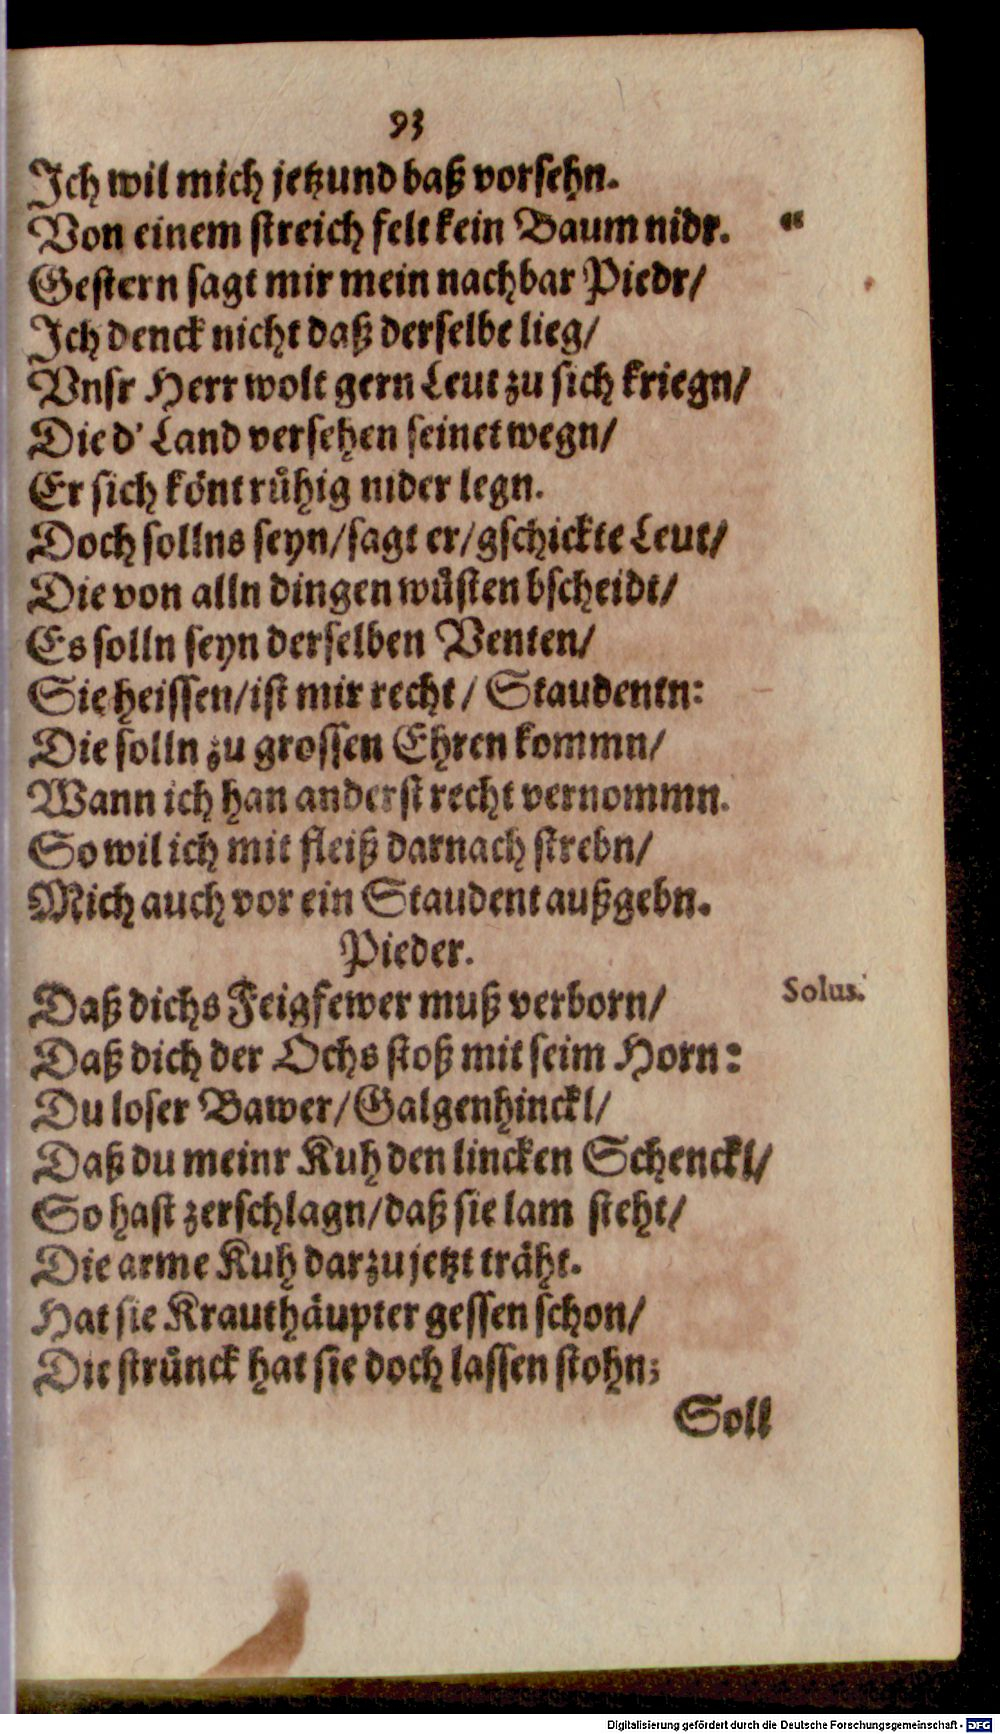 93
Ich wil mich jetzund baß vorsehn.
Von einem streich felt kein Baum nidr. "
Gestern sagt mir mein nachbar Piedr/
Ich denck nicht daß derselbe lieg/
Vnsr Herr wolt gern Leut zu sich kriegn/
Die d' Land versehen seinet wegn/
Er sich könt rühig nider legn.
Doch sollns seyn/sagt er/gschickte Leut/
Die von alln dingen wüsten bscheidt/
Es solln seyn derselben Venten/
Sie heissen/ist mir recht/ Staudentn:
Die solln zu grossen Ehren kommn/
Wann ich han anderst recht vernommn.
So wil ich mit fleiß darnach strebn/
Mich auch vor ein Staudent außgebn.
Pieder.
Daß dichs Feigfewer muß verborn/ Solus.
Daß dich der Ochs stoß mit seim Horn:
Du loser Bawer/Galgenhinckl/
Daß du meinr Kuh den lincken Schenckl/
So hast zerschlagn/daß sie lam steht/
Die arme Kuh darzu jetzt träht.
Hat sie Krauthäupter gessen schon/
Die strünck hat sie doch lassen stohn;
Soll
Digitalisierung gefördert durch die Deutsche Forschungsgemeinschaft - DFG